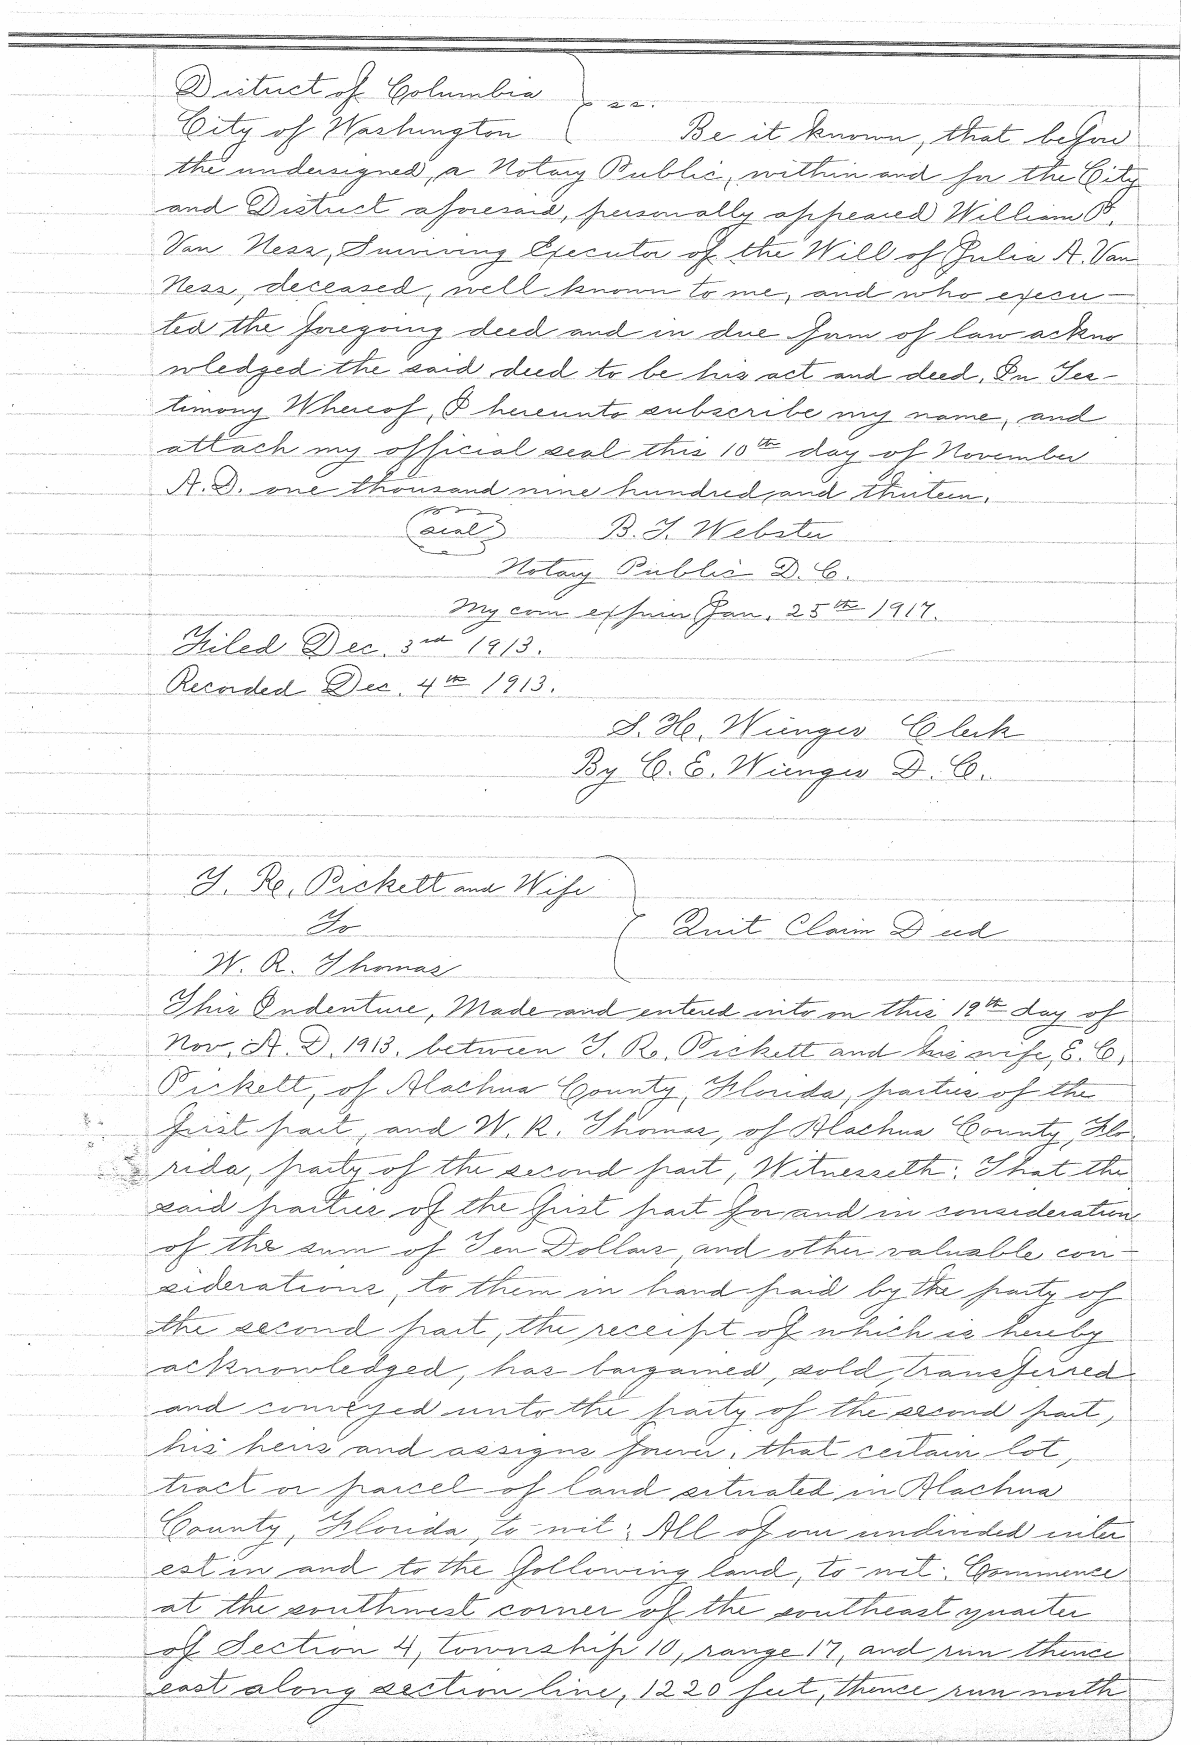 District of Columbia
ss.
City of Washington Be it known, that before
the undersigned, a Notary Public, within and for the City
and District aforesaid, personally appeared William P.
Van Ness, Surviving Executor of the Will of Julia A. Van
Ness, deceased, well known to me, and who execu-
ted the foregoing deed and in due form of law ackno
wledged the said deed to be his act and deed. In Tes-
timony Whereof, I hereunto subscribe my name, and
attach my official seal this 10th day of November
A.D. one thousand nine hundred and thirteen.
(seal) B. T. Webster
Notary Public D. C.
My com expires Jan. 25th 1917.
Filed Dec. 3rd 1913.
Recorded Dec. 4th 1913.
S. H. Wienges Clerk
By C. E. Wienges D. C.
T. R. Pickett and Wife
To Quit Claim Deed
W. R. Thomas
This Indenture, Made and entered into on this 19th day of
Nov, A. D. 1913, between T. R. Pickett and his wife, E. C,
Pickett, of Alachua County, Florida, parties of the
first part, and W. R. Thomas, of Alachua County, Flo
rida, party of the second part, Witnesseth: That the
said parties of the first part for and in consideration
of the sum of Ten Dollars, and other valuable con-
siderations, to them in hand paid by the party of
the second part, the receipt of which is hereby
acknowledged, has bargained, sold, transferred
and conveyed unto the party of the second part,
his heirs and assigns forever, that certain lot,
tract or parcel of land situated in Alachua
County, Florida, to-wit: All of our undivided inter
est in and to the following land, to-wit: Commence
at the southwest corner of the southeast quarter
of Section 4, township 10, range 17, and run thence
east along section line, 1220 feet, thence run north